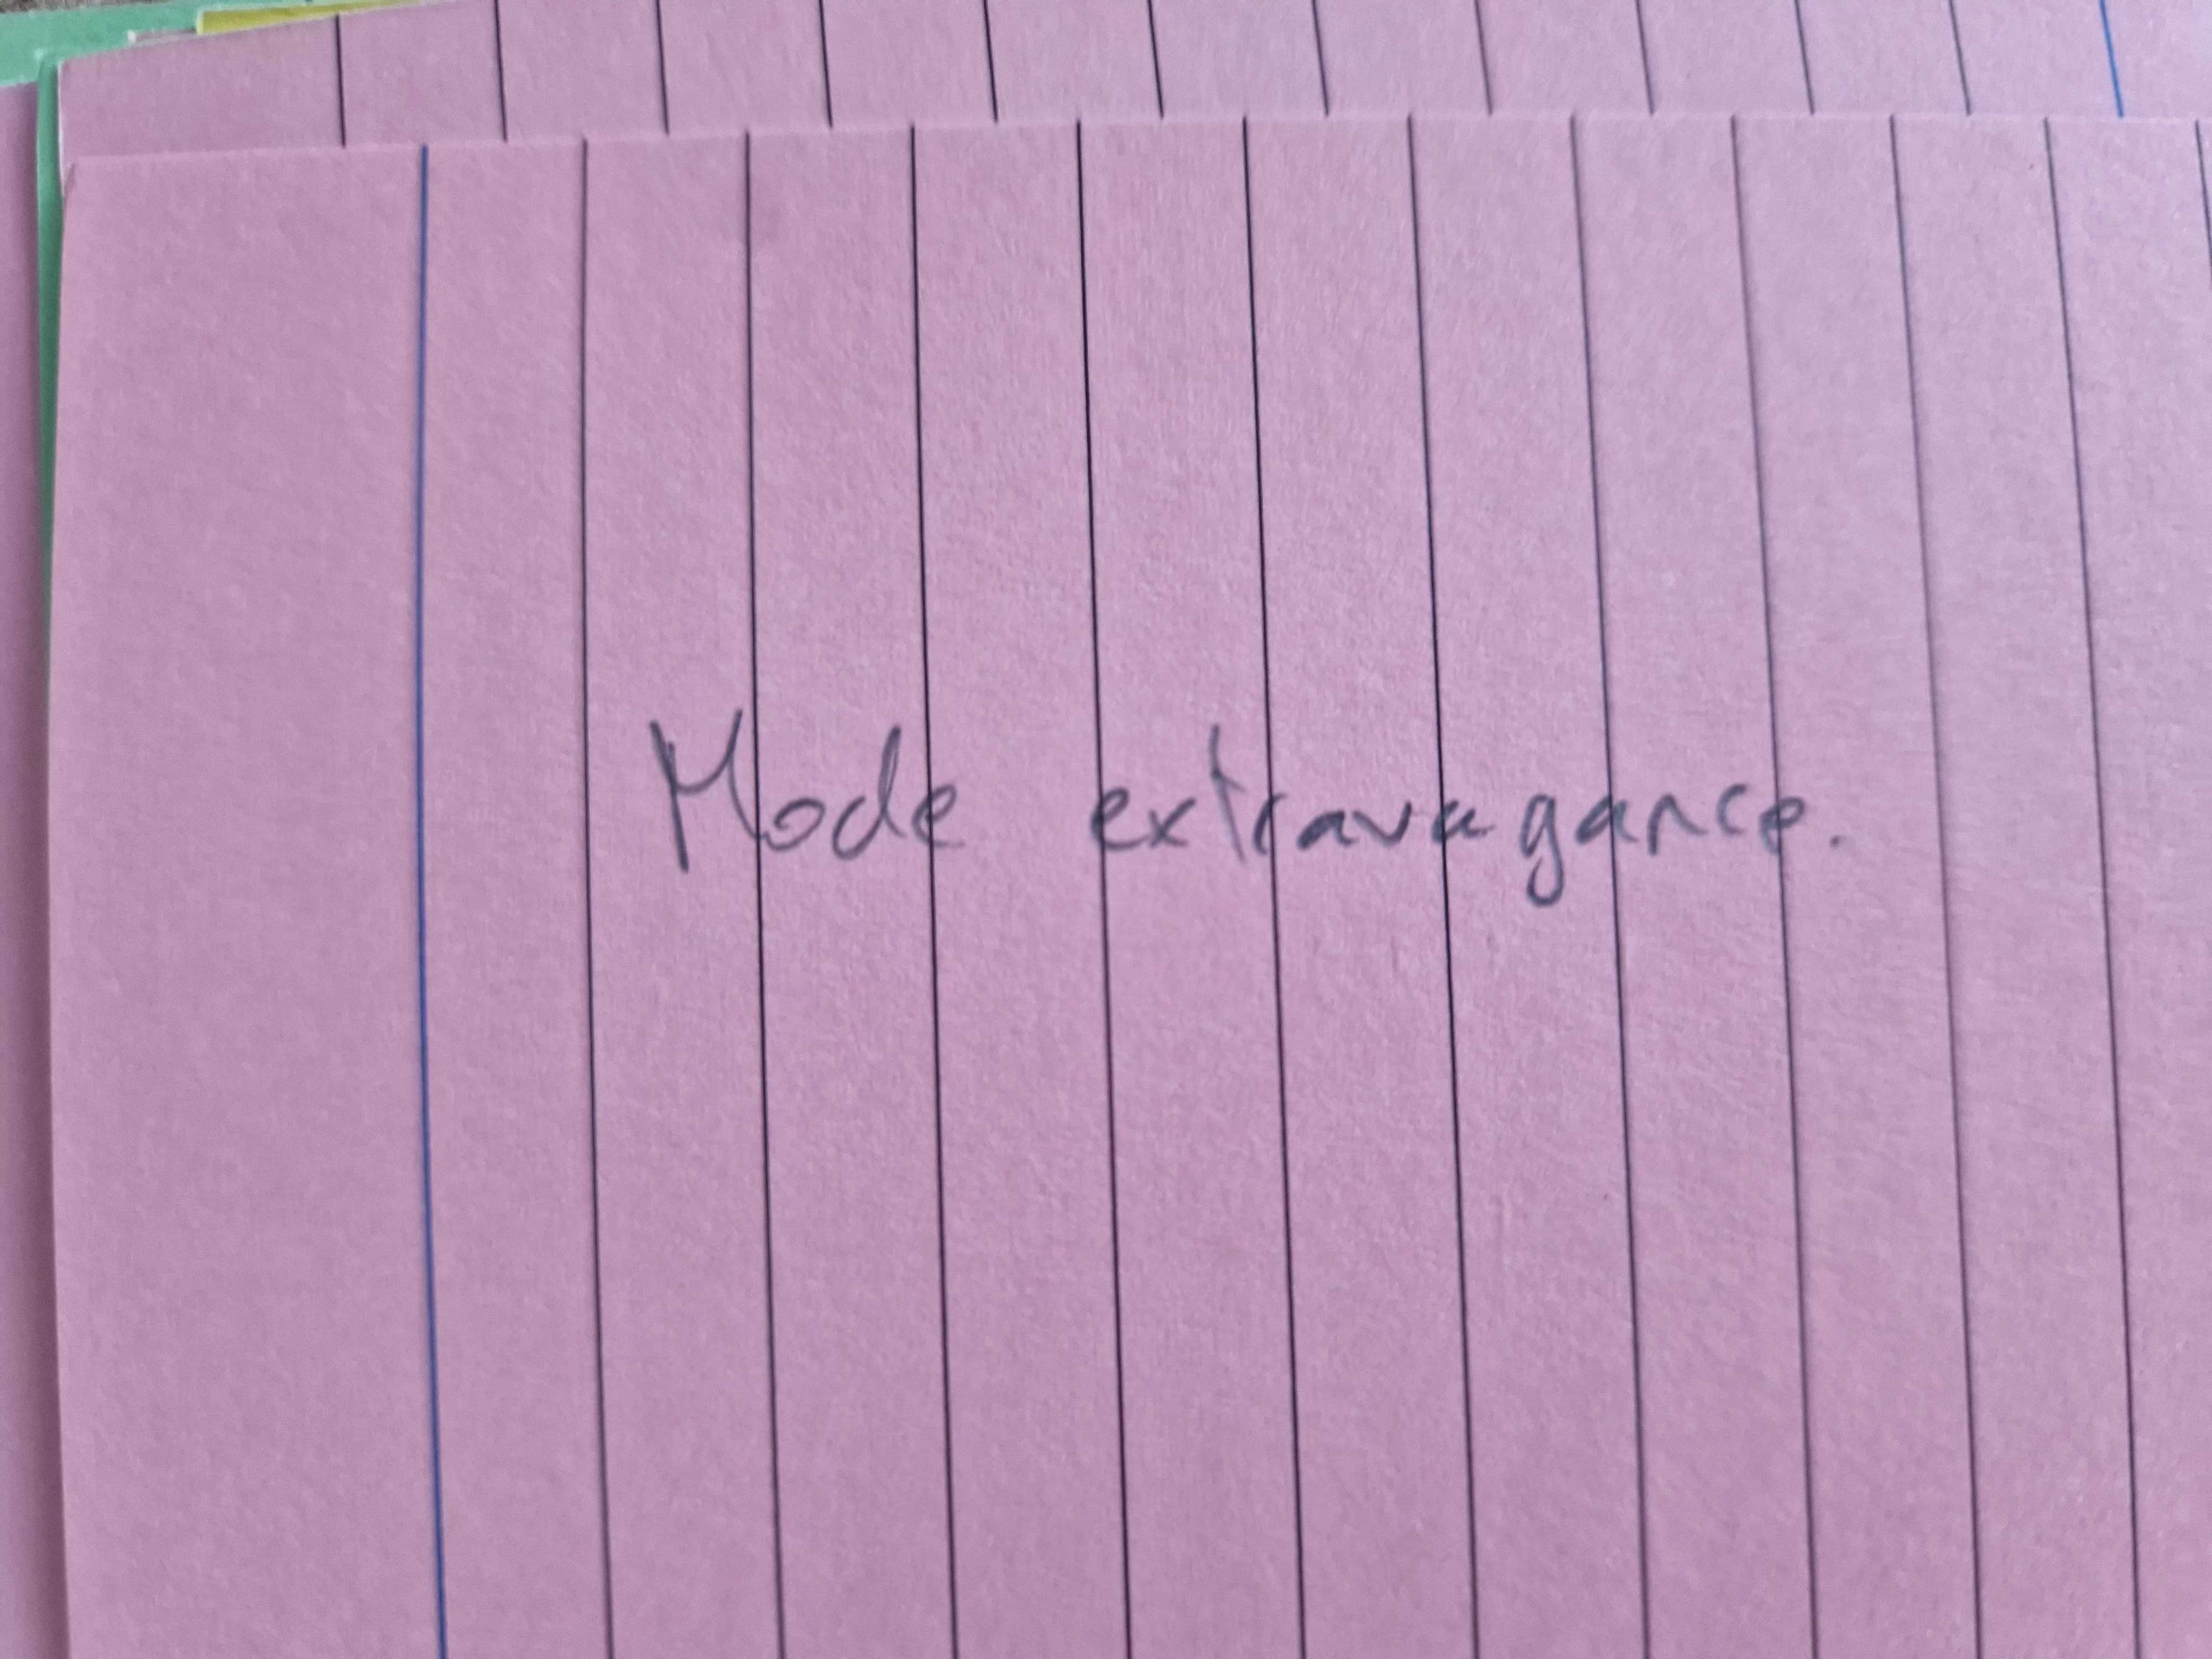 Mode extravagance.